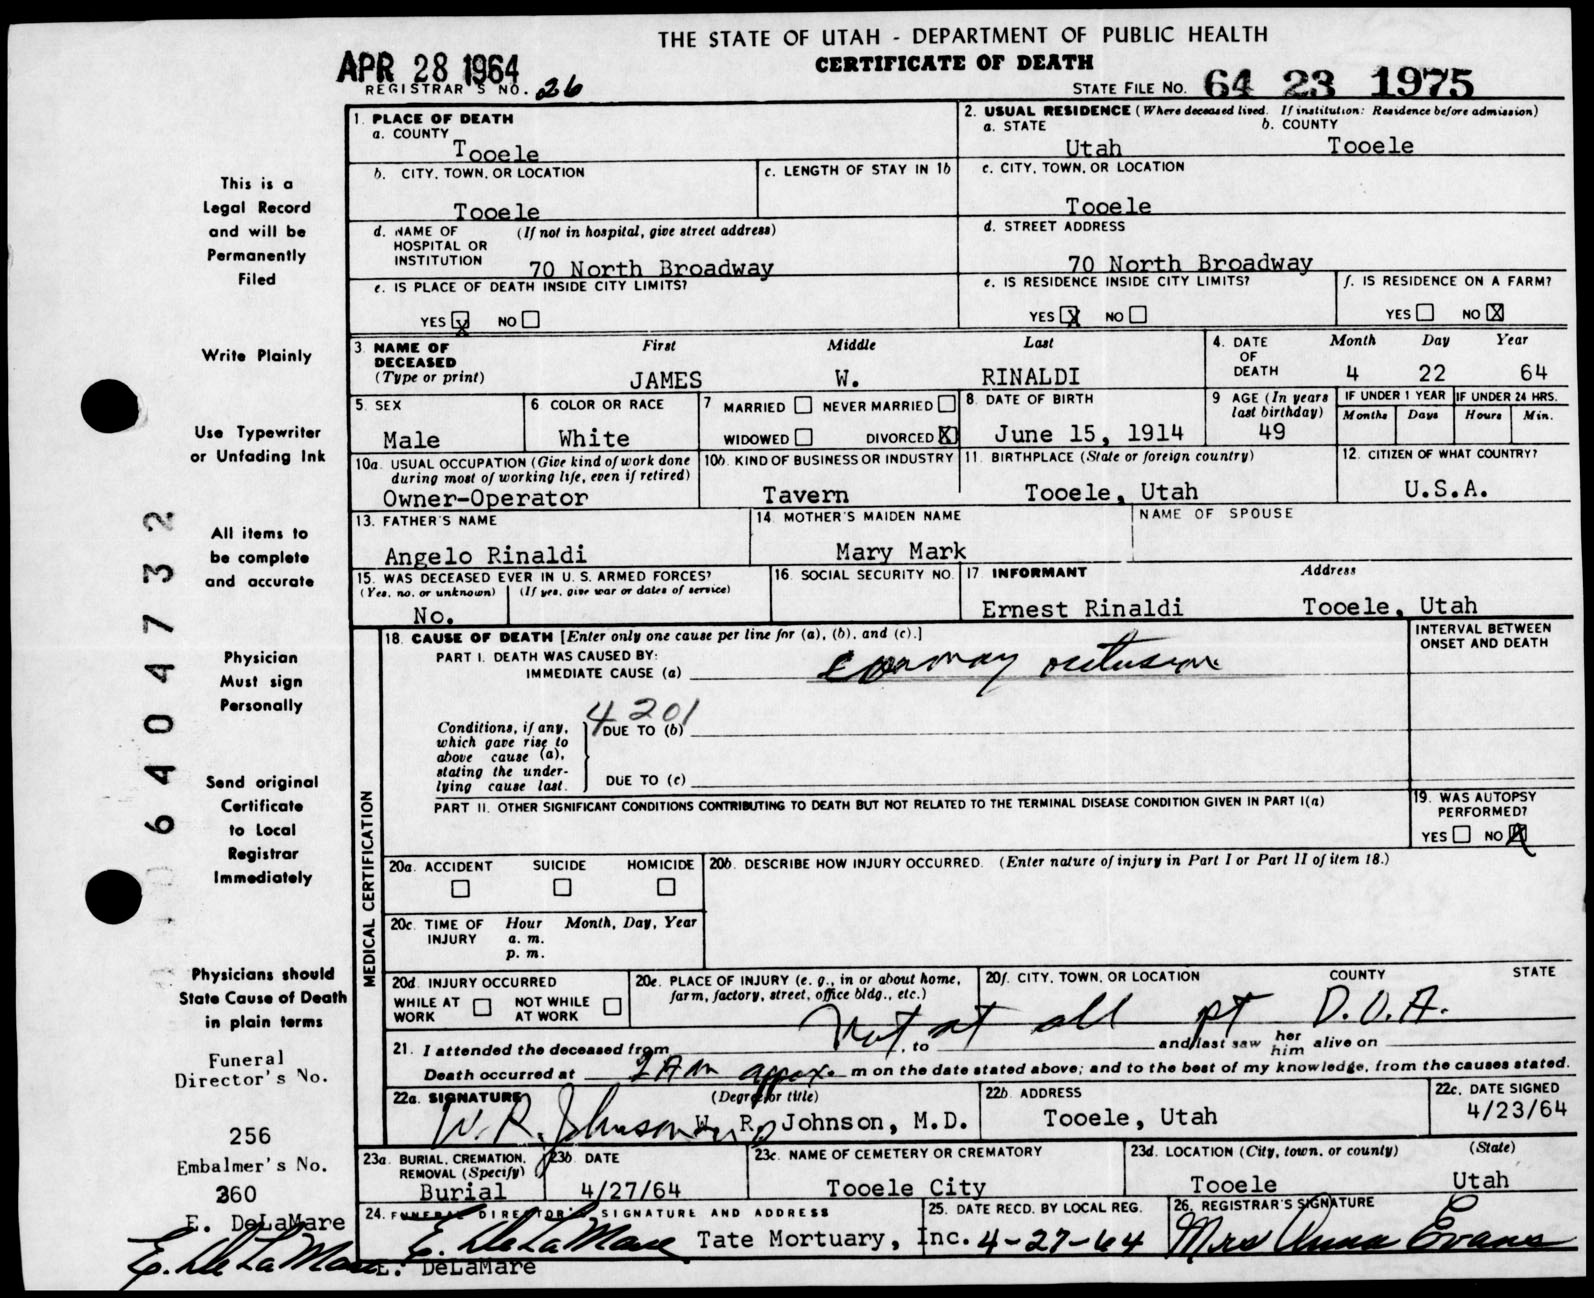 THE STATE OF UTAH - DEPARTMENT OF PUBLIC HEALTH
CERTIFICATE OF DEATH
APR 28 1964
REGISTRAR'S NO. 26
STATE FILE NO. 64 23 1975
This is a
Legal Record
and will be
Permanently
Filed
Write Plainly
Use Typewriter
or Unfading Ink
All items to
be complete
and accurate
Physician
Must sign
Personally
Send original
Certificate
to Local
Registrar
Immediately
Physicians should
State Cause of Death
in plain terms
Funeral
Director's No.
256
Embalmer's No.
360
E. DeLaMare
E. DeLaMare
6404732
1. PLACE OF DEATH
a. COUNTY
Tooele
2. USUAL RESIDENCE (Where deceased lived. If institution: Residence before admission)
a. STATE b. COUNTY
Utah Tooele
b. CITY, TOWN, OR LOCATION
Tooele
c. LENGTH OF STAY IN 1b
c. CITY, TOWN, OR LOCATION
Tooele
d. NAME OF (If not in hospital, give street address)
HOSPITAL OR
INSTITUTION
70 North Broadway
d. STREET ADDRESS
70 North Broadway
e. IS PLACE OF DEATH INSIDE CITY LIMITS?
YES X NO
e. IS RESIDENCE INSIDE CITY LIMITS?
YES X NO
f. IS RESIDENCE ON A FARM?
YES NO X
3. NAME OF DECEASED (Type or print)
First Middle Last
JAMES W. RINALDI
4. DATE OF DEATH
Month Day Year
4 22 64
5. SEX
Male
6. COLOR OR RACE
White
7 MARRIED NEVER MARRIED
WIDOWED DIVORCED X
8. DATE OF BIRTH
June 15, 1914
9 AGE (In years last birthday)
49
IF UNDER 1 YEAR
Months Days
IF UNDER 24 HRS.
Hours Min.
10a. USUAL OCCUPATION (Give kind of work done
during most of working life, even if retired)
Owner-Operator
10b. KIND OF BUSINESS OR INDUSTRY
Tavern
11. BIRTHPLACE (State or foreign country)
Tooele, Utah
12. CITIZEN OF WHAT COUNTRY?
U.S.A.
13. FATHER'S NAME
Angelo Rinaldi
14. MOTHER'S MAIDEN NAME
Mary Mark
NAME OF SPOUSE
15. WAS DECEASED EVER IN U.S. ARMED FORCES?
(Yes, no. or unknown) (If yes, give war or dates of service)
No.
16. SOCIAL SECURITY NO.
17. INFORMANT Address
Ernest Rinaldi Tooele, Utah
MEDICAL CERTIFICATION
18. CAUSE OF DEATH [Enter only one cause per line for (a), (b), and (c).]
PART I. DEATH WAS CAUSED BY:
IMMEDIATE CAUSE (a) coronary occlusion
INTERVAL BETWEEN
ONSET AND DEATH
4201
Conditions, if any,
which gave rise to
above cause (a),
stating the under-
lying cause last.
DUE TO (b)
DUE TO (c)
PART II. OTHER SIGNIFICANT CONDITIONS CONTRIBUTING TO DEATH BUT NOT RELATED TO THE TERMINAL DISEASE CONDITION GIVEN IN PART I(a)
19. WAS AUTOPSY
PERFORMED?
YES NO X
20a. ACCIDENT SUICIDE HOMICIDE
20b. DESCRIBE HOW INJURY OCCURRED. (Enter nature of injury in Part I or Part II of item 18.)
20c. TIME OF INJURY Hour Month, Day, Year
a. m.
p. m.
20d. INJURY OCCURRED
WHILE AT WORK NOT WHILE AT WORK
20e. PLACE OF INJURY (e. g., in or about home,
farm, factory, street, office bldg., etc.)
20f. CITY, TOWN, OR LOCATION COUNTY STATE
Not at all pt D.O.A.
21. I attended the deceased from , to and last saw her him alive on
Death occurred at 2 AM approx. m on the date stated above; and to the best of my knowledge, from the causes stated.
22a. SIGNATURE (Degree or title)
W. R. Johnson W. R. Johnson, M.D.
22b. ADDRESS
Tooele, Utah
22c. DATE SIGNED
4/23/64
23a. BURIAL, CREMATION,
REMOVAL (Specify)
Burial
23b. DATE
4/27/64
23c. NAME OF CEMETERY OR CREMATORY
Tooele City
23d. LOCATION (City, town. or county) (State)
Tooele Utah
24. FUNERAL DIRECTOR'S SIGNATURE AND ADDRESS
E. DeLaMare Tate Mortuary, Inc.
E. DeLaMare
25. DATE RECD. BY LOCAL REG.
4-27-64
26. REGISTRAR'S SIGNATURE
Mrs Anna Evans